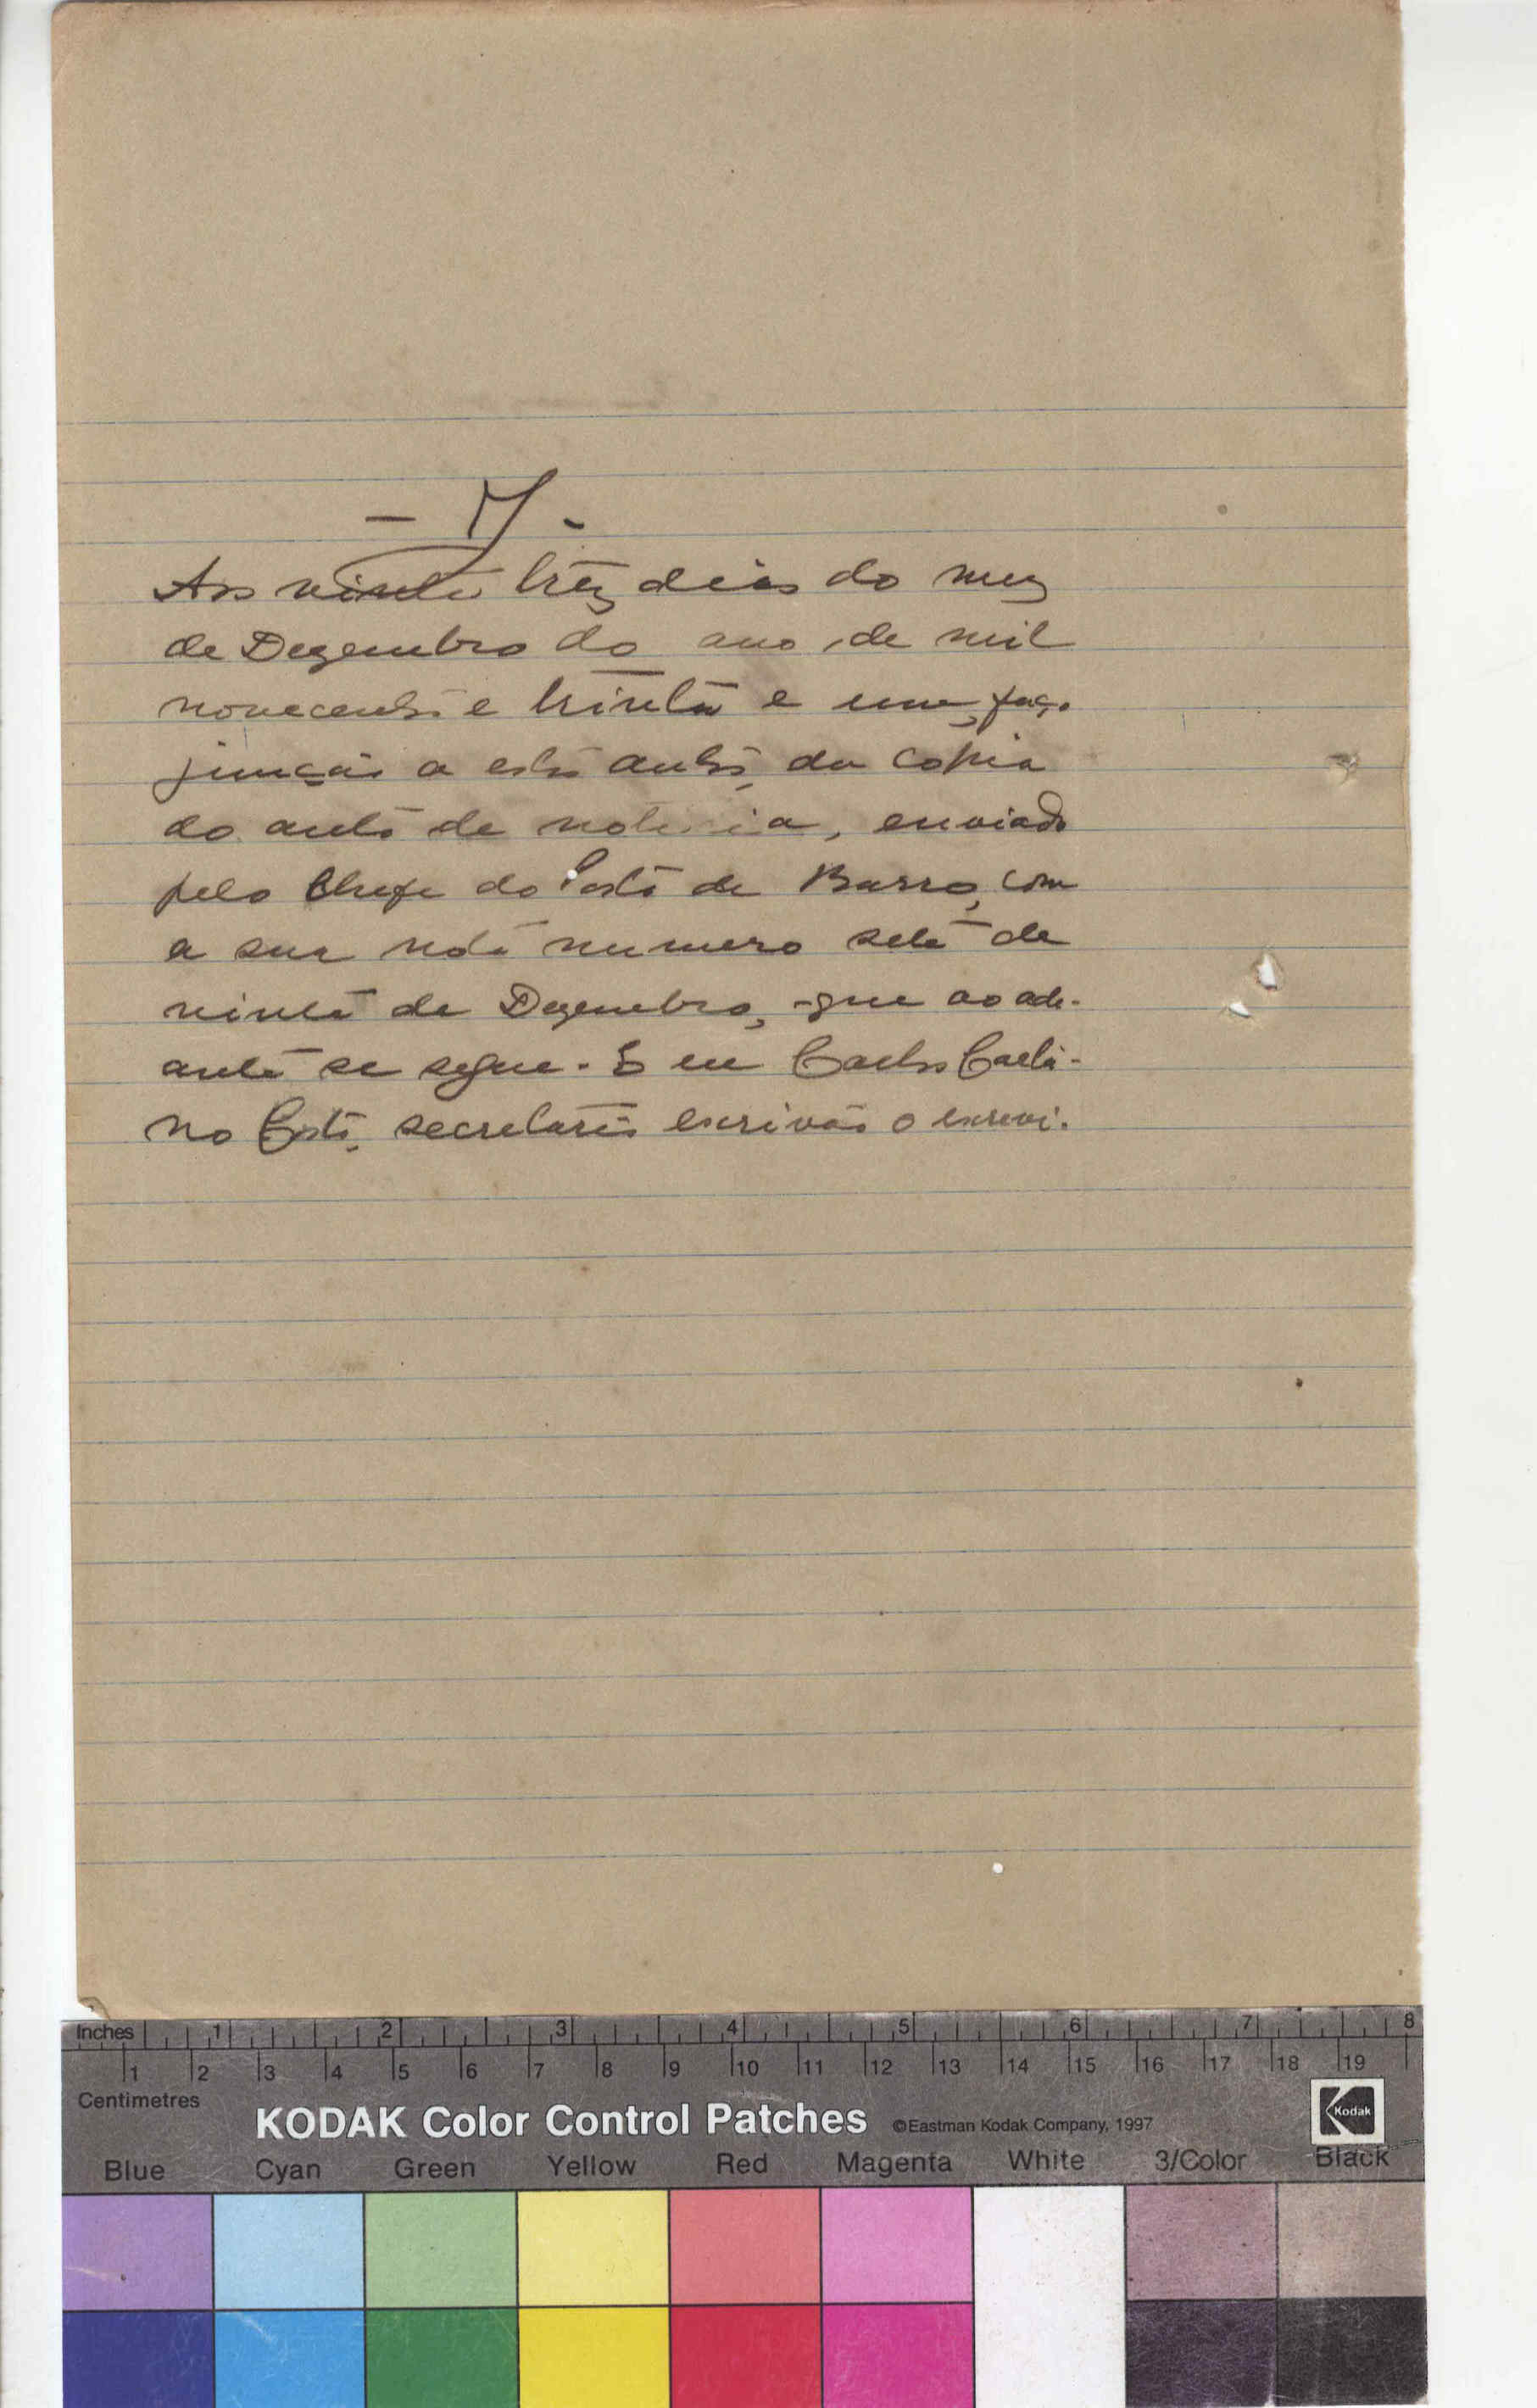 Aos vinte trez dias do mez
de Dezembro do ano de mil
novecentos e trinta e um, faço
junção a estes autos, da copia
do auto de noticia, enviado
pelo Chefe do Posto de Barro, com
a sua nota numero sete de
vinte de Dezembro, que ao ade-
ante se segue. E eu Carlos Caeta-
no Costa, secretario escrivão o escrevi.
Inches 1 2 3 4 5 6 7 8
1 2 3 4 5 6 7 8 9 10 11 12 13 14 15 16 17 18 19
Centimetres
KODAK Color Control Patches ©Eastman Kodak Company, 1997 Kodak
Blue Cyan Green Yellow Red Magenta White 3/Color Black